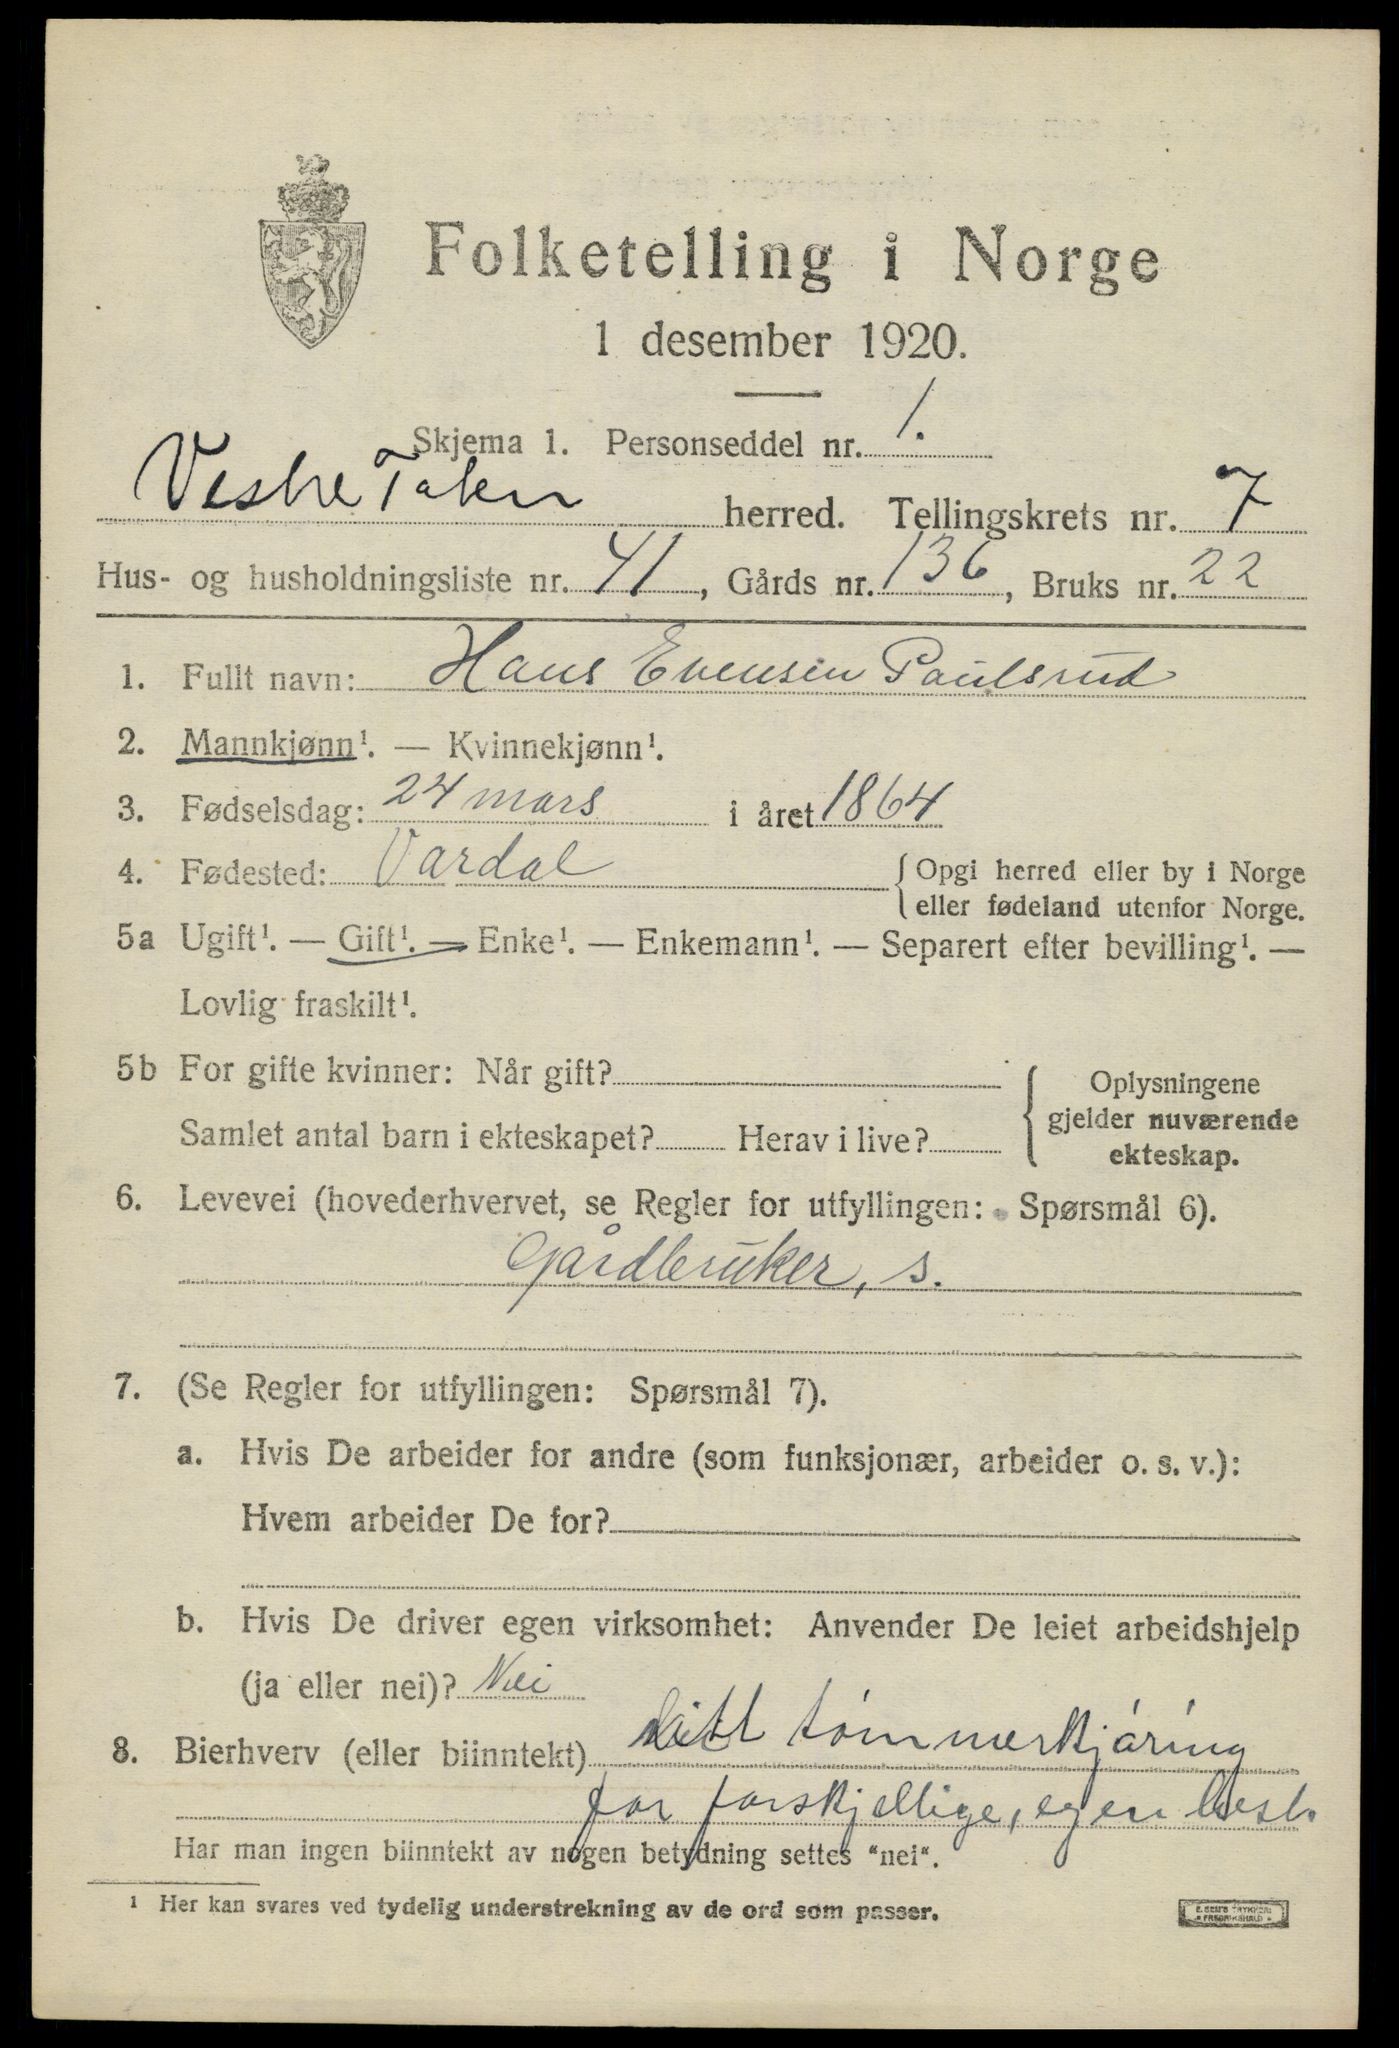 Folketelling i Norge
1 desember 1920.
Skjema 1. Personseddel nr. 1.
Vestre Toten herred. Tellingskrets nr. 7
Hus- og husholdningsliste nr. 41, Gårds nr. 136, Bruks nr. 22
1. Fullt navn: Hans Evensen Paulsrud
2. Mannkjønn¹. — Kvinnekjønn¹.
3. Fødselsdag: 24 mars i året 1864
4. Fødested: Vardal {Opgi herred eller by i Norge
eller fødeland utenfor Norge.
5a Ugift¹. — Gift¹. — Enke¹. — Enkemann¹. — Separert efter bevilling¹. —
Lovlig fraskilt¹.
5b For gifte kvinner: Når gift?
Samlet antal barn i ekteskapet? Herav i live?
{Oplysningene
gjelder nuværende
ekteskap.
6. Levevei (hovederhvervet, se Regler for utfyllingen: Spørsmål 6).
Gårdbruker, s.
7. (Se Regler for utfyllingen: Spørsmål 7).
a. Hvis De arbeider for andre (som funksjonær, arbeider o. s. v.):
Hvem arbeider De for?
b. Hvis De driver egen virksomhet: Anvender De leiet arbeidshjelp
(ja eller nei)? Nei
8. Bierhverv (eller biinntekt) Litt tømmerkjøring
for forskjellige, egen hest.
Har man ingen biinntekt av nogen betydning settes "nei".
¹ Her kan svares ved tydelig understrekning av de ord som passer.
E. SEM'S TRYKKERI
FREDRIKSHALD